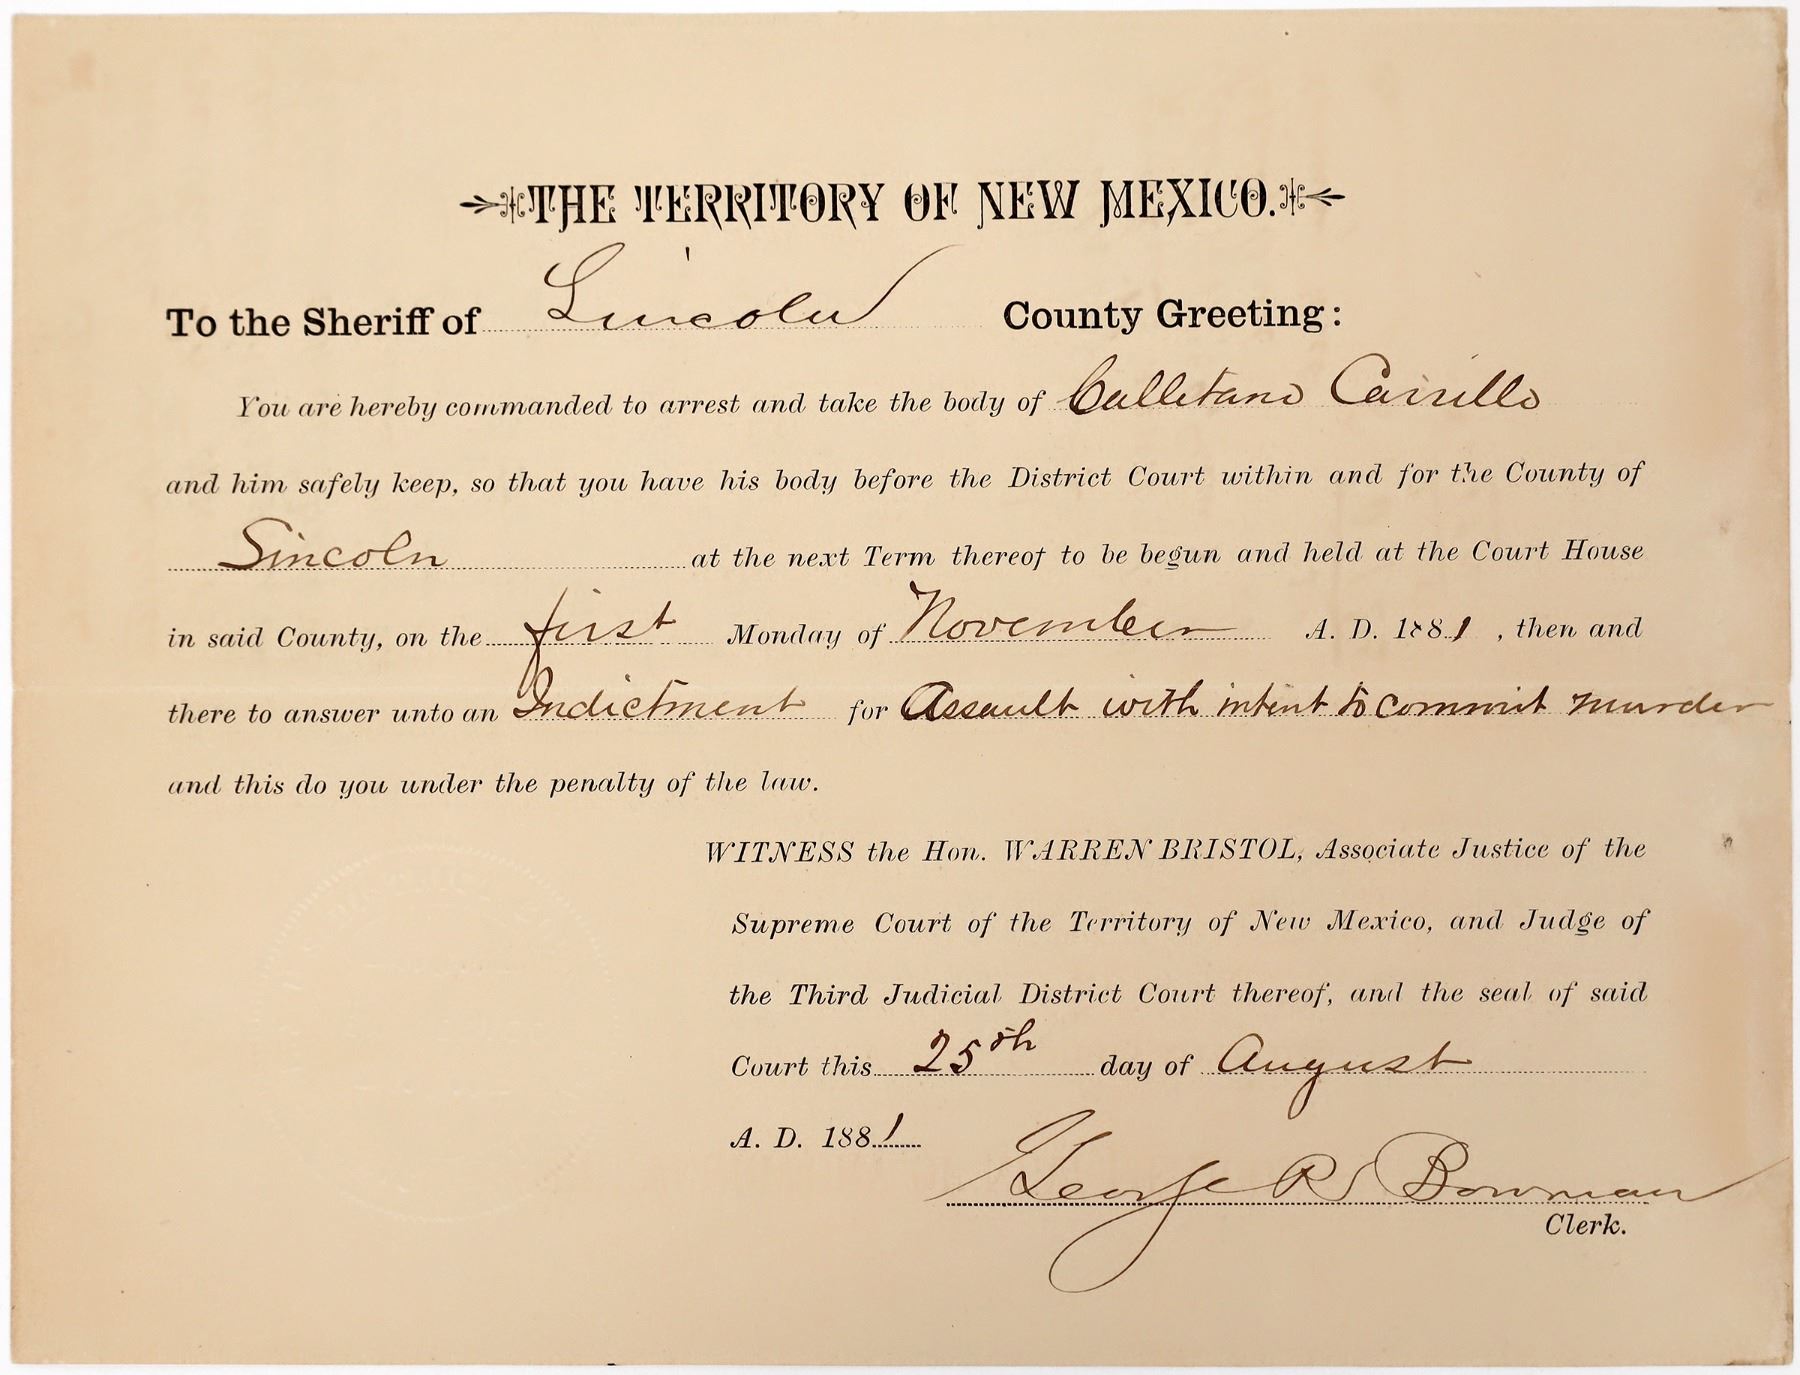 THE TERRITORY OF NEW MEXICO.
To the Sheriff of Lincoln County Greeting:
You are hereby commanded to arrest and take the body of Calletano Carrillo
and him safely keep, so that you have his body before the District Court within and for the County of
Lincoln at the next Term thereof to be begun and held at the Court House
in said County, on the first Monday of November A. D. 1881, then and
there to answer unto an Indictment for Assault with intent to commit murder
and this do you under the penalty of the law.
WITNESS the Hon. WARREN BRISTOL, Associate Justice of the
Supreme Court of the Territory of New Mexico, and Judge of
the Third Judicial District Court thereof, and the seal of said
Court this 25th day of August
A. D. 1881
George R Bowman
Clerk.